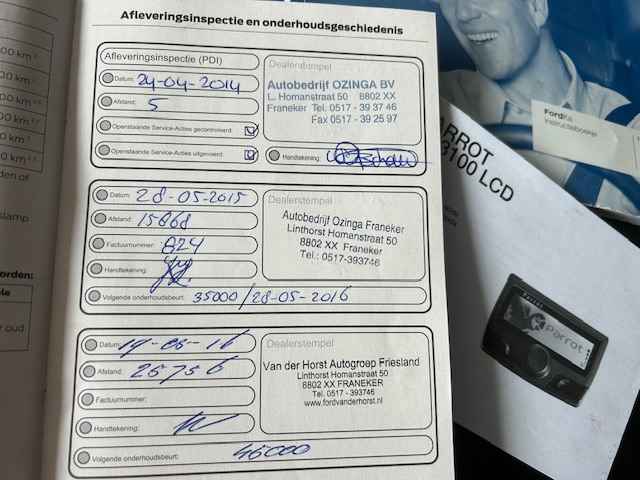 Afleveringsinspectie en onderhoudsgeschiedenis
Afleveringsinspectie (PDI)
Datum: 24-04-2014
Afstand: 5
Openstaande Service-Acties gecontroleerd:
Openstaande Service-Acties uitgevoerd:
Dealerstempel
Autobedrijf OZINGA BV
L. Homanstraat 50 8802 XX
Franeker Tel. 0517 - 39 37 46
Fax 0517 - 39 25 97
Handtekening:
Datum: 28-05-2015
Afstand: 15868
Factuurnummer: 824
Handtekening:
Volgende onderhoudsbeurt: 35000/28-05-2016
Dealerstempel
Autobedrijf Ozinga Franeker
Linthorst Homanstraat 50
8802 XX Franeker
Tel.: 0517-393746
Datum:
Afstand: 25756
Factuurnummer:
Handtekening:
Volgende onderhoudsbeurt: 46000
Dealerstempel
Van der Horst Autogroep Friesland
Linthorst Homanstraat 50
8802 XX FRANEKER
Tel. 0517 - 393746
www.fordvanderhorst.nl
00 km
00 km
00 km
00 km
00 km
den of
slamp
orden:
le
r oud
FordKa
Instructieboekje
ARROT
3100 LCD
Parrot